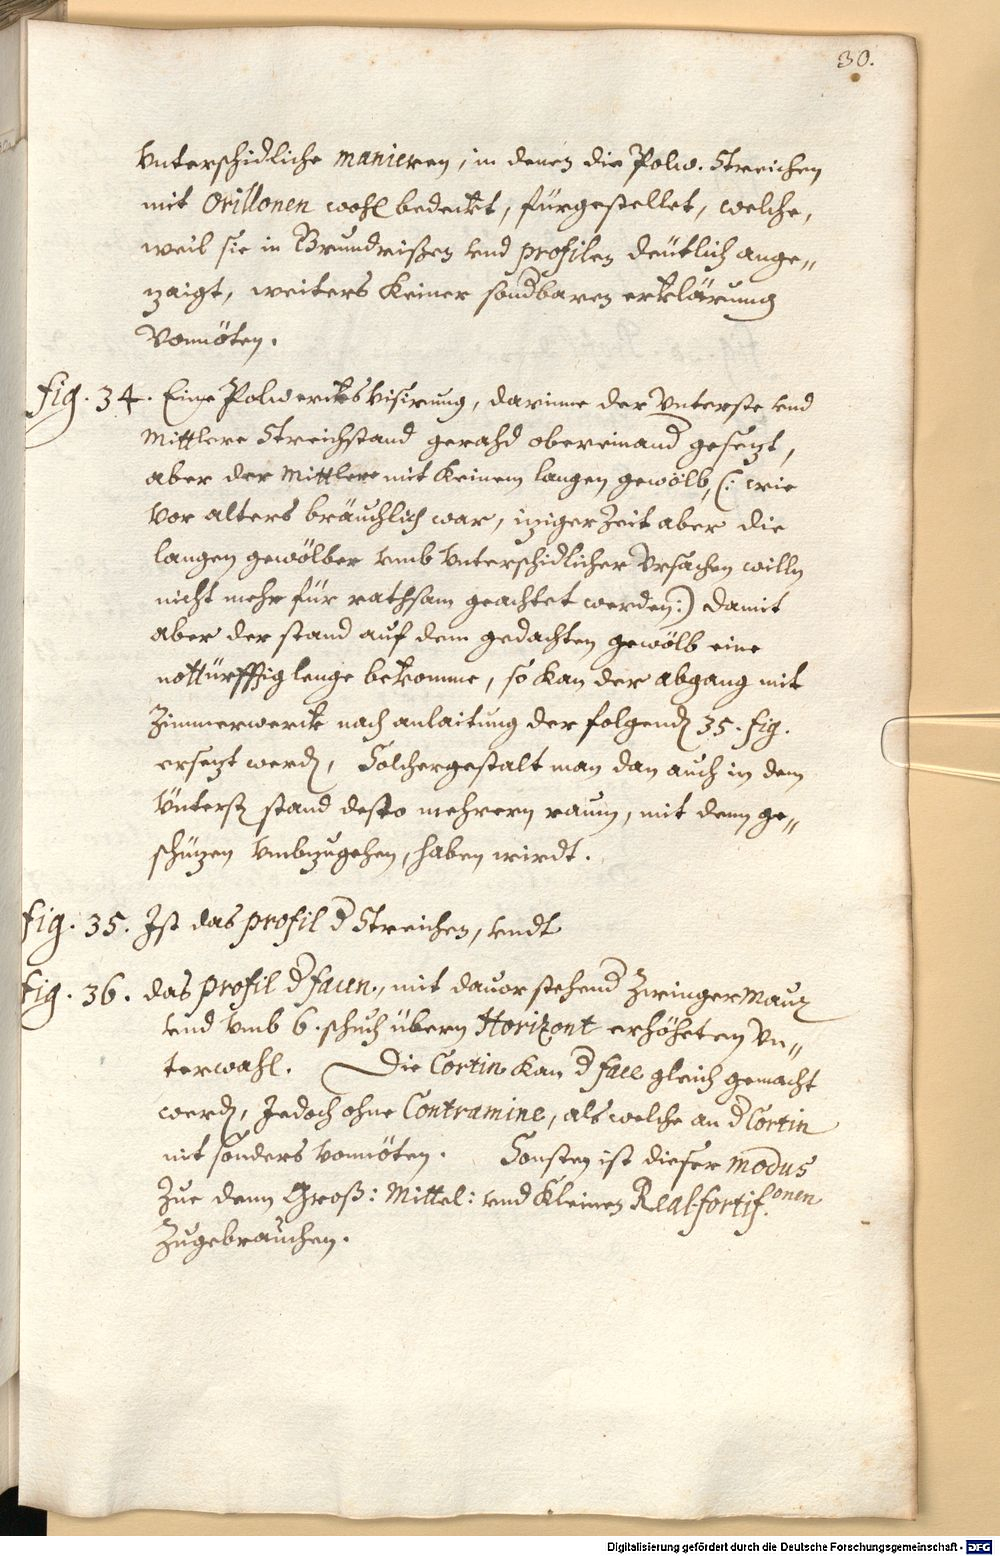 30.
Vnterschidliche manieren, in denen die Polw. Streichen
mit Orillonen wohl bedeckt, fürgestellet, welche,
weil sie in Grundrißen vnd profilen deütlich ange„
zaigt, weiters keiner sondbaren erklärung
Vonnöten.
fig. 34. Eine Polwercks Visirung, darinne der Vnterste vnd
Mittlere Streichstand gerahd obereinand gesetzt,
aber der Mittlere mit keinem langen gewölb, (: wie
Vor alters bräuchlich war, itziger Zeit aber die
langen gewölber vmb Vnterschidlicher Vrsachen willn
nicht mehr für rathsam geachtet werden:) damit
aber der stand auf dem gedachten gewölb eine
nottürfftig lenge bekomme, so kan der abgang mit
Zimmerwerck nach anlaitung der folgend 35. fig.
ersetzt werd, Solchergestalt man dan auch in dem
Vnterst stand desto mehrern raum, mit denn ge„
schützen vmbzugehen, haben wirdt.
fig. 35. Ist das profil d Streichen, vndt
fig. 36. das profil d facen, mit dauor stehend Zwinger Maur
vnd vmb 6. schuch übern Horizont erhöheten Vn„
terwahl. Die Cortin kan d face gleich gemacht
werd, Jedoch ohne Contramine, als welche an d Cortin
nit sonders vonnöten. Sonsten ist dieser modus
Zue denn Groß: Mittel: vnd Kleinen Real-fortif.onen
Zugebrauchen.
Digitalisierung gefördert durch die Deutsche Forschungsgemeinschaft - DFG